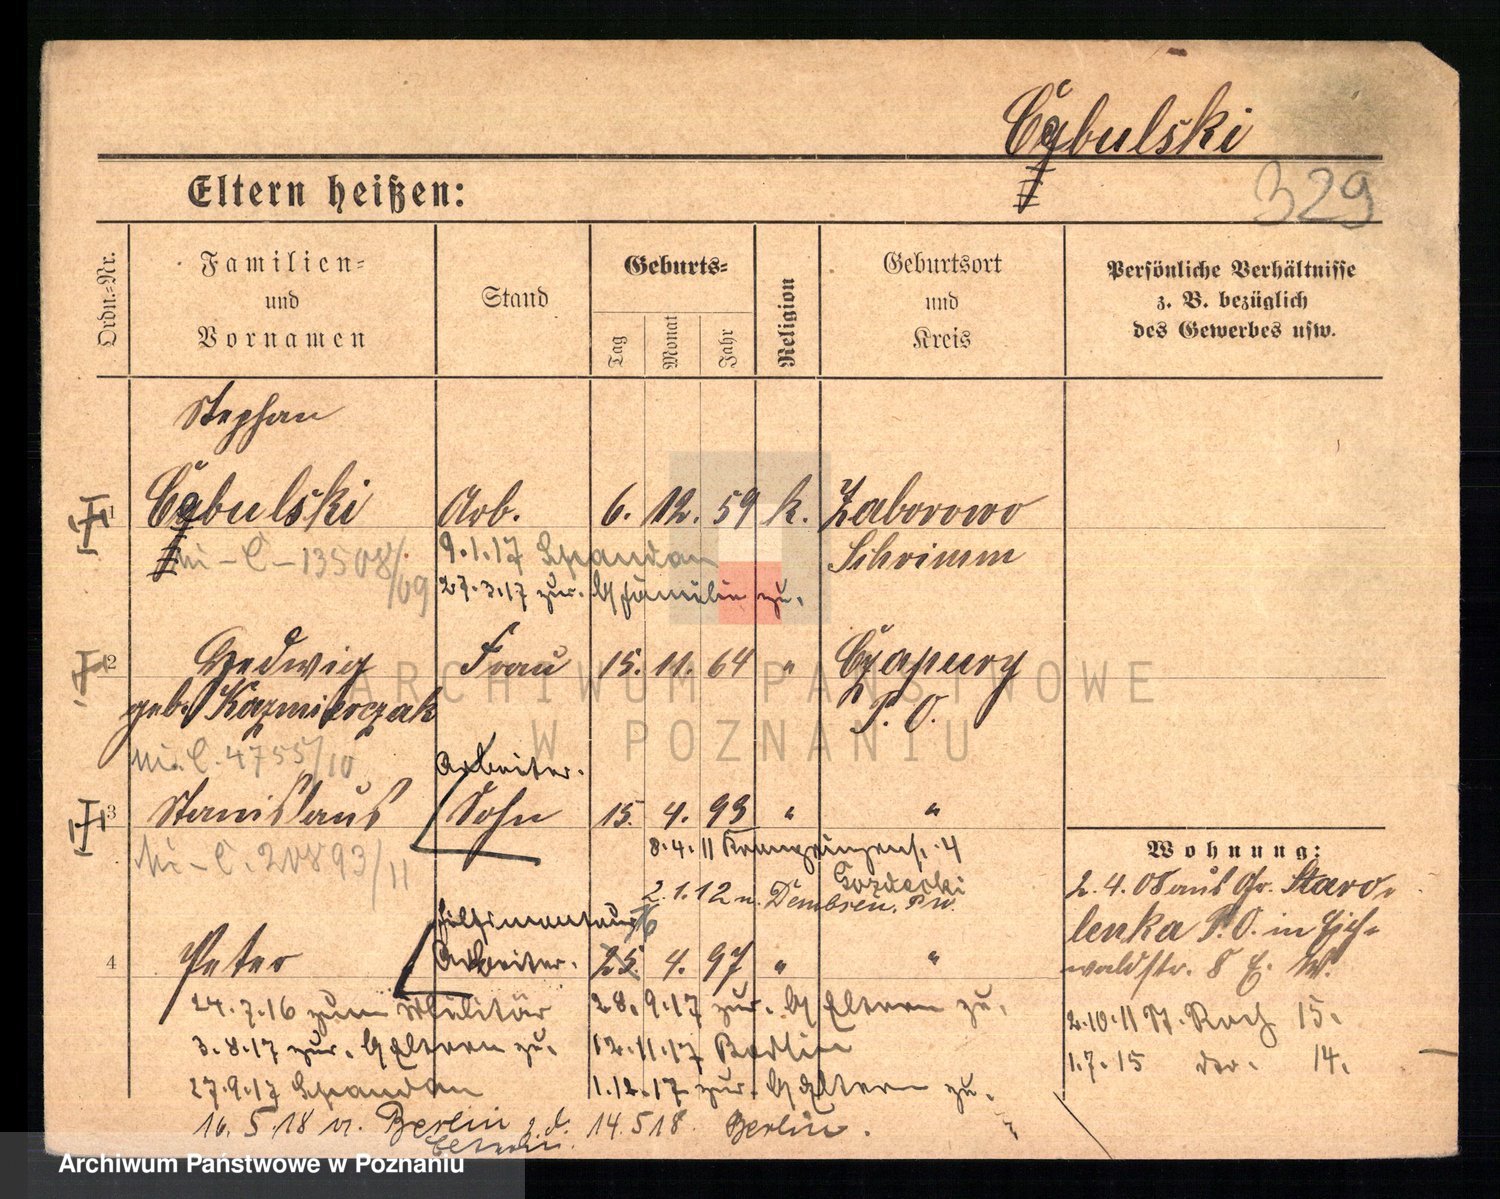 Cybulski
329
Eltern heißen:
Ordn.-Nr.
Familien- und Vornamen
Stand
Geburts-
Tag
Monat
Jahr
Religion
Geburtsort und Kreis
Persönliche Verhältnisse
z. B. bezüglich
des Gewerbes usw.
Stephan
1 Cybulski Arb. 6. 12. 59 k. Zaborowo
C-13508/09
9.1.17 Spandau
Schrimm
27.3.17 zur. b/ Familie zu.
2 Hedwig Frau 15. 11. 64 " Czapury
geb. Kazmierczak P. O.
C. 4755/10
Arbeiter.
3 Stanislaus Sohn 15. 4. 93 " "
C. 20893/11
8.4.11 Kronprinzenst. 4
2.1.12 n. Dembsen, P.W.
Wohnung:
2.4.08 aus Gr. Staro-
lenka P.O. in Eich-
waldstr. 8
4 Peter Arbeiter. 25. 4. 97 " "
24.7.16 zum Militär
28.9.17 zur. b/ Eltern zu.
2.10.11 St. Roch 15.
3.8.17 zur. b/ Eltern zu.
12.11.17 Berlin
1.7.15 do. 14.
27.9.17 Spandau
1.12.17 zur. b/ Eltern zu.
16.5.18 n. Berlin 14.5.18 Berlin.
ARCHIWUM PAŃSTWOWE
W POZNANIU
Archiwum Państwowe w Poznaniu